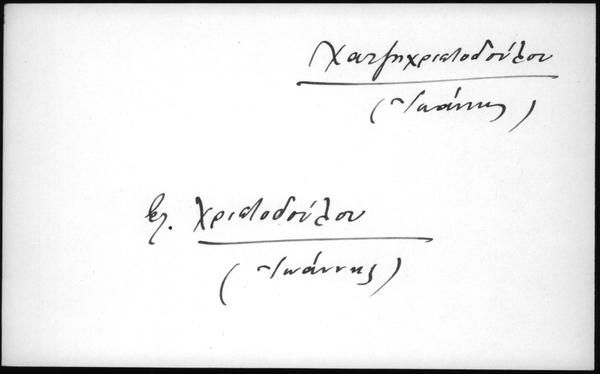 Χατζηχριστοδούλου
(Ἰωάννης)
βλ. Χριστοδούλου
(Ἰωάννης)